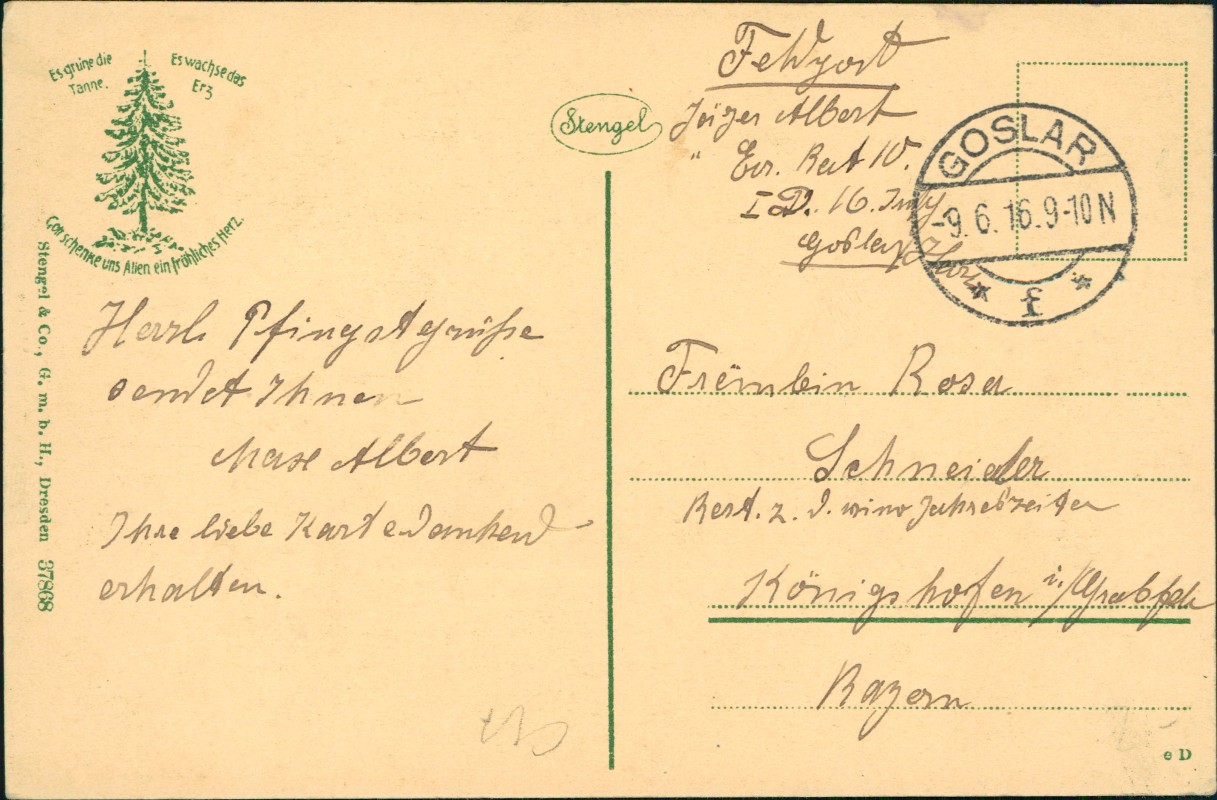 Es grüne die
Tanne.
Es wachse das
Erz
Gott schenke uns Allen ein fröhliches Herz.
Stengel & Co., G. m. b. H., Dresden 37868
Herzl. Pfingstgrüße
sendet Ihnen
Max Albert
Ihre liebe Karte dankend
erhalten.
Stengel
Feldpost
Jäger Albert
" Ers. Batl 10.
I D. 16.
Goslar/Harz
GOSLAR
-9.6.16.9-10N
* f *
Fräulein Rosa
Schneider
Rest. z. d. Jahreszeiten
Königshofen i./Grabfeld
Bayern
e D